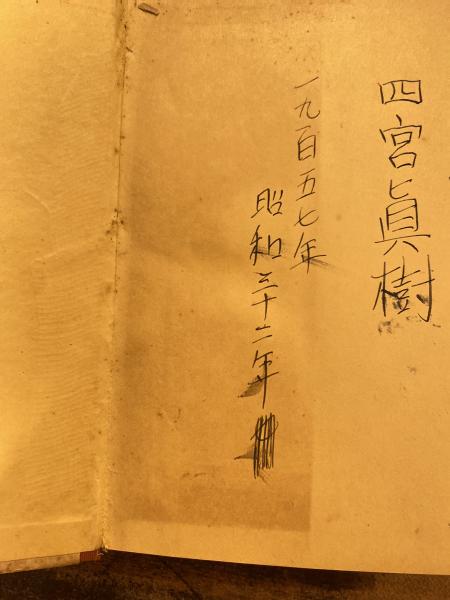 四宮眞樹
一九百五七年
昭和三十二年